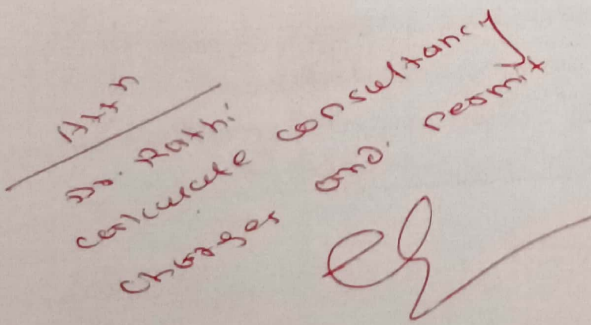 Attn
Dr. Rathi
calculate consultancy
charges and. permit